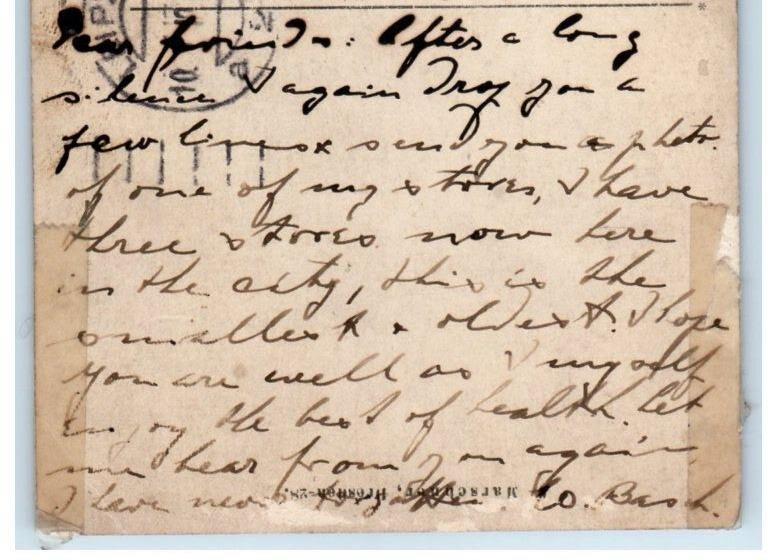 Dear friends: After a long
silence I again drop you a
few lines & send you a photo
of one of my stores, I have
three stores now here
in the city, this is the
smallest & oldest. I hope
you are well as I myself
enjoy the best of health. Let
me hear from you again
I have never forgotten W. Basch.
Marschner, Dresden-28.